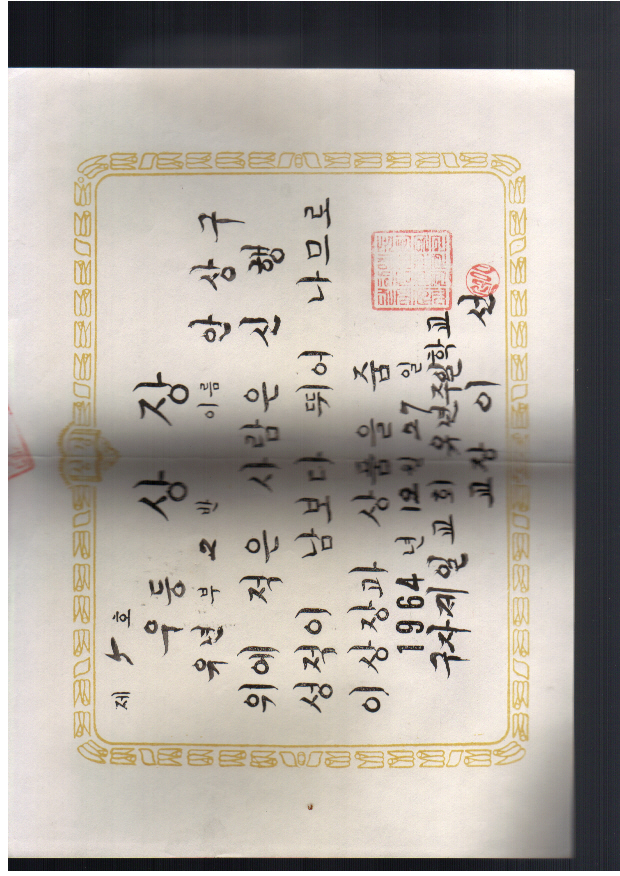 성경
제 5 호
우등 상 장
유년 부 2 반 이름 안 상 구
위에 적은 사람은 신 행
성적이 남보다 뛰어 나므로
이 상장과 상품을 줌
1964 년 12 월 27 일
구자제일교회 유년주일학교
교장 이 선